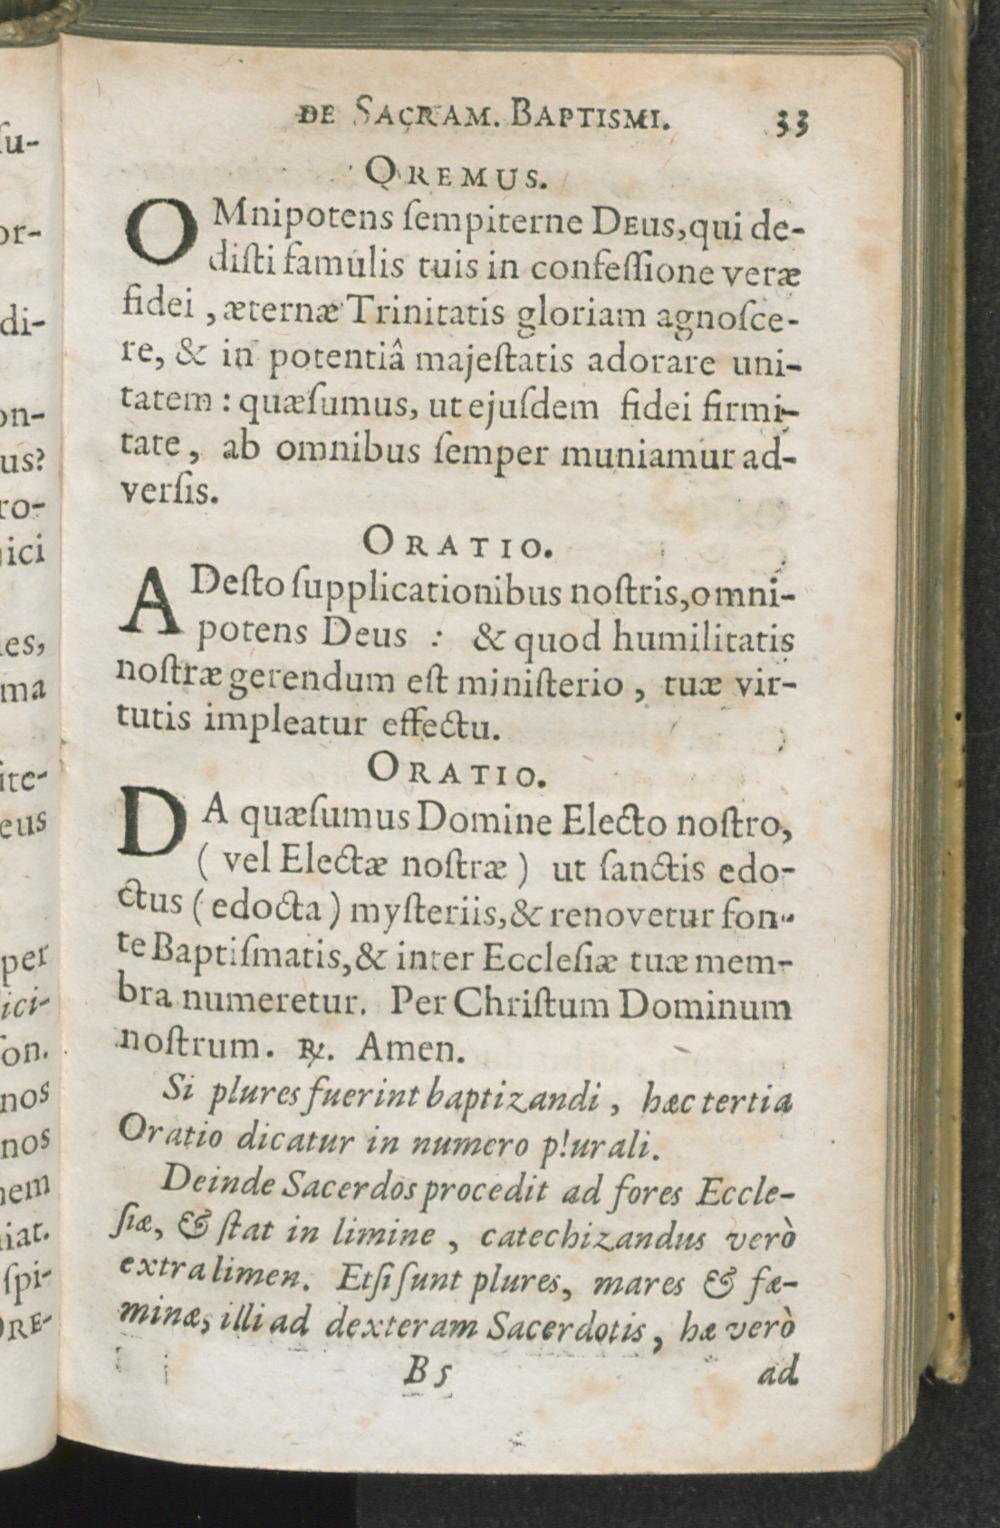 DE SACRAM. BAPTISMI. 33
OREMUS.
OMnipotens ſempiterne DEus,qui de-
diſti famulis tuis in confeſſione veræ
fidei , æternæ Trinitatis gloriam agnoſce-
re, & in potentiâ majeſtatis adorare uni-
tatem : quæſumus, ut ejuſdem fidei firmi-
tate , ab omnibus ſemper muniamur ad-
verſis.
ORATIO.
ADeſto ſupplicationibus noſtris,omni-
potens Deus : & quod humilitatis
noſtræ gerendum eſt miniſterio , tuæ vir-
tutis impleatur effectu.
ORATIO.
DA quæſumus Domine Electo noſtro,
( vel Electæ noſtræ ) ut ſanctis edo-
ctus ( edocta ) myſteriis,& renovetur fon-
te Baptiſmatis,& inter Eccleſiæ tuæ mem-
bra numeretur. Per Chriſtum Dominum
noſtrum. ℟. Amen.
Si plures fuerint baptizandi , hæc tertia
Oratio dicatur in numero plurali.
Deinde Sacerdos procedit ad fores Eccle-
ſiæ, & ſtat in limine , catechizandus verò
extra limen. Etſi ſunt plures, mares & fæ-
minæ, illi ad dexteram Sacerdotis , hæ verò
B 5 ad
ſu-
or-
di-
on-
us?
ro-
ici
es,
ma
ite-
eus
per
ici-
on.
nos
nos
nem
iat.
ſpi-
ORE-